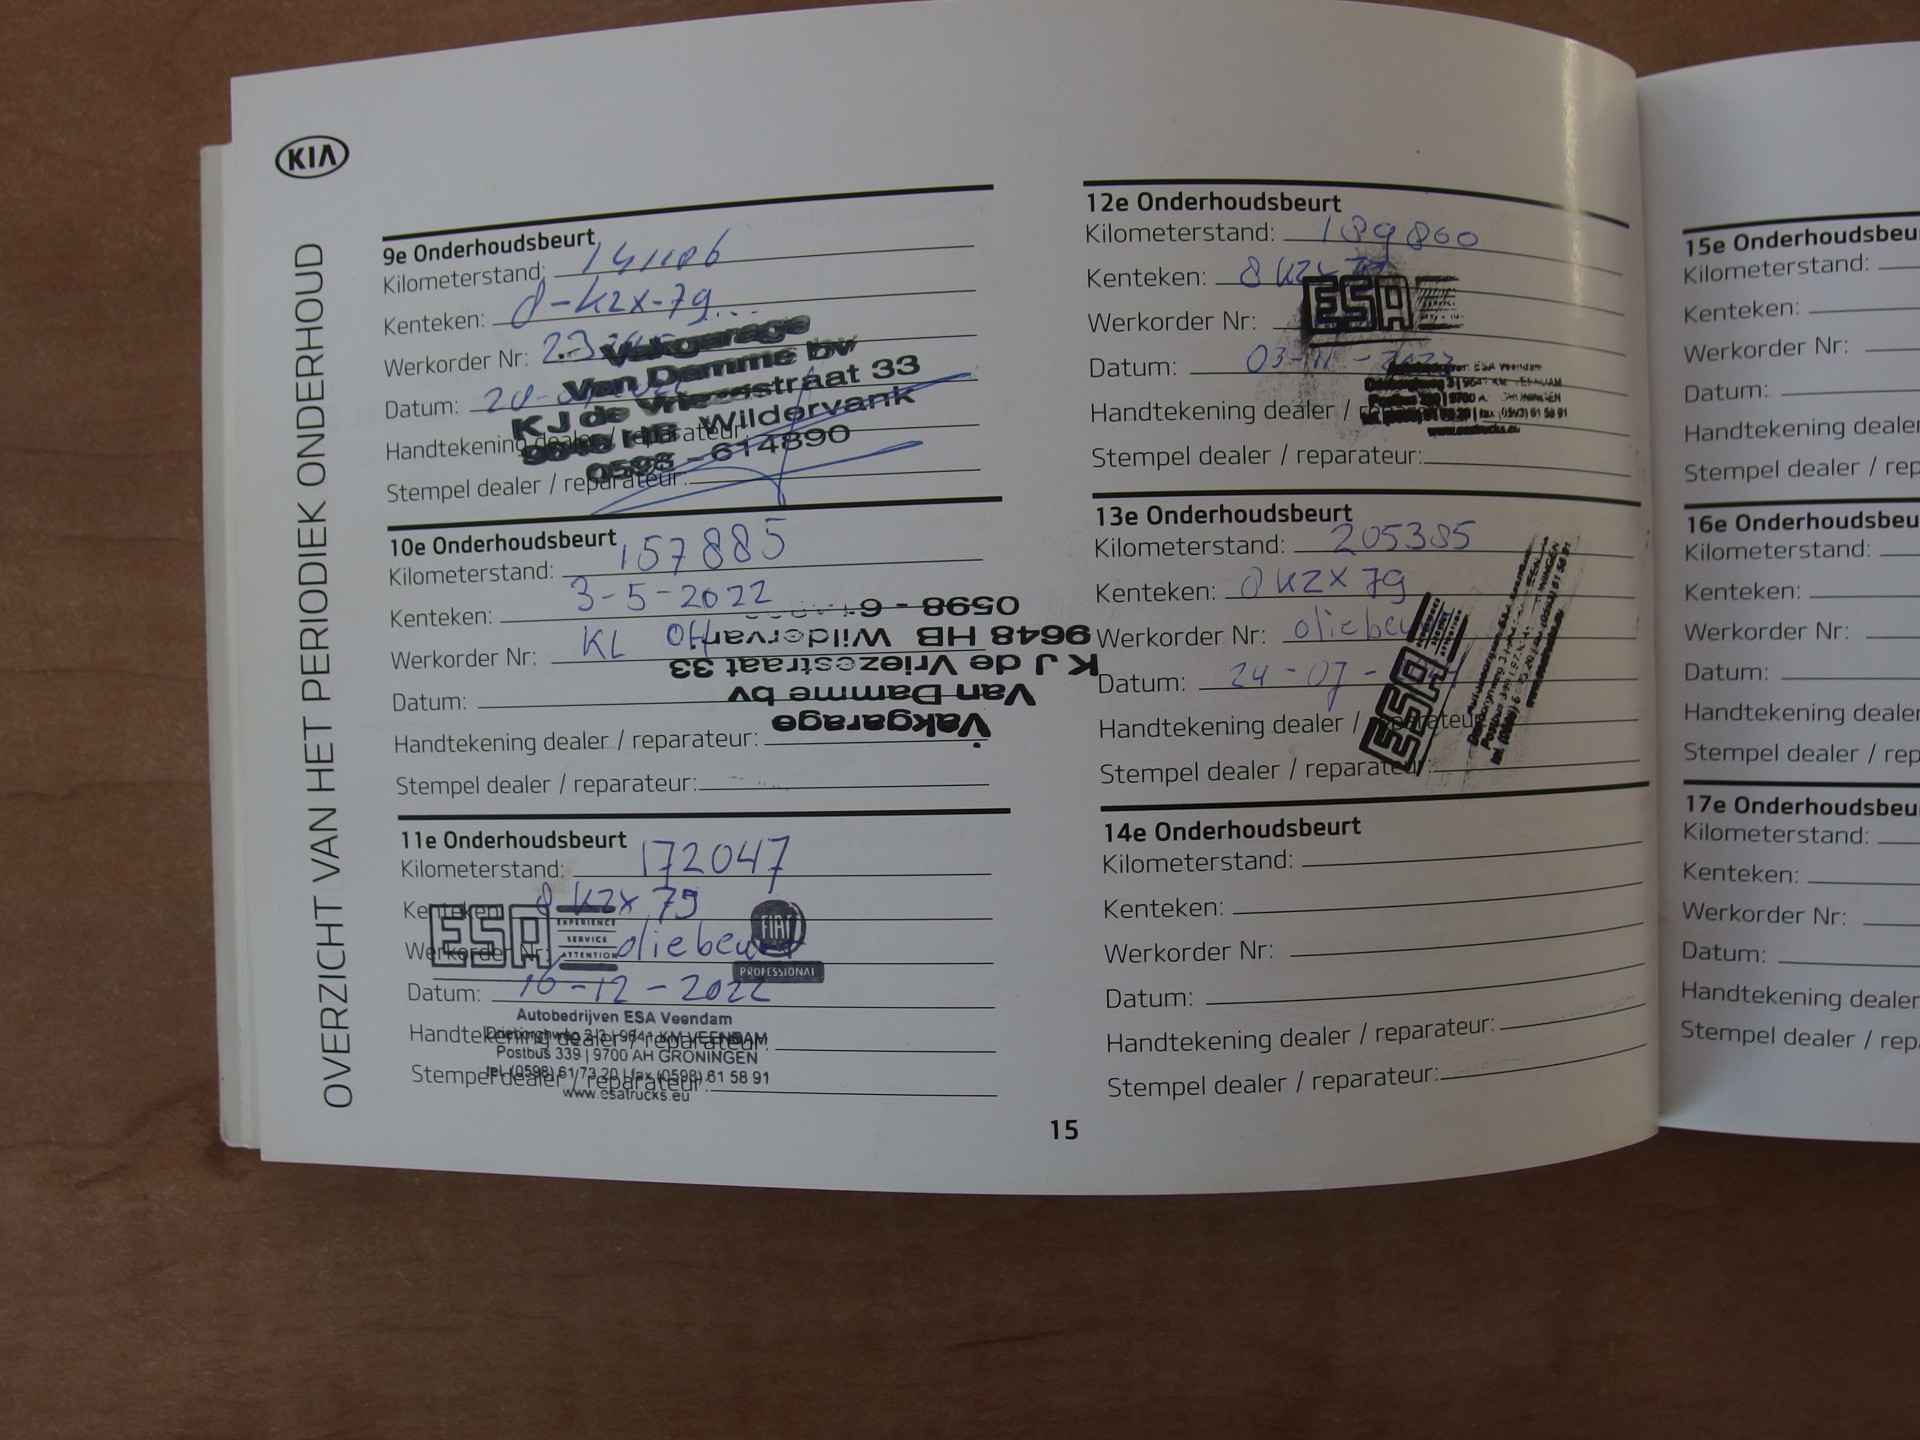 KIA
OVERZICHT VAN HET PERIODIEK ONDERHOUD
9e Onderhoudsbeurt
Kilometerstand:
Kenteken: 8-KZX-79
Werkorder Nr:
Datum:
Handtekening dealer / reparateur:
Stempel dealer / reparateur:
Vakgarage
Van Damme bv
K J de Vriezestraat 33
9648 HB Wildervank
0598 - 614890
10e Onderhoudsbeurt
Kilometerstand: 157885
Kenteken: 3-5-2022
Werkorder Nr: KL
Datum:
Handtekening dealer / reparateur:
Stempel dealer / reparateur:
Vakgarage
Van Damme bv
K J de Vriezestraat 33
9648 HB Wildervank
0598 - 61
11e Onderhoudsbeurt
Kilometerstand: 172047
Kenteken: 8 KZX 79
Werkorder Nr: oliebeurt
Datum: 16-12-2022
Handtekening dealer / reparateur:
Stempel dealer / reparateur:
ESA
EXPERIENCE
SERVICE
ATTENTION
FIAT
PROFESSIONAL
Autobedrijven ESA Veendam
9641 KM VEENDAM
Postbus 339 | 9700 AH GRONINGEN
tel. (0598) 61 73 20 | fax (0598) 61 58 91
www.esatrucks.eu
12e Onderhoudsbeurt
Kilometerstand: 189800
Kenteken: 8 KZX 79
Werkorder Nr:
Datum: 03-11-
Handtekening dealer /
Stempel dealer / reparateur:
ESA
ESA Veendam
www.esatrucks.eu
13e Onderhoudsbeurt
Kilometerstand: 205385
Kenteken: 8 KZX 79
Werkorder Nr:
Datum: 24-07-
Handtekening dealer / reparateur
Stempel dealer / reparateur:
ESA
14e Onderhoudsbeurt
Kilometerstand:
Kenteken:
Werkorder Nr:
Datum:
Handtekening dealer / reparateur:
Stempel dealer / reparateur:
15
15e Onderhoudsbeu
Kilometerstand:
Kenteken:
Werkorder Nr:
Datum:
Handtekening dealer
Stempel dealer / rep
16e Onderhoudsbeu
Kilometerstand:
Kenteken:
Werkorder Nr:
Datum:
Handtekening dealer
Stempel dealer / rep
17e Onderhoudsbeu
Kilometerstand:
Kenteken:
Werkorder Nr:
Datum:
Handtekening dealer
Stempel dealer / rep